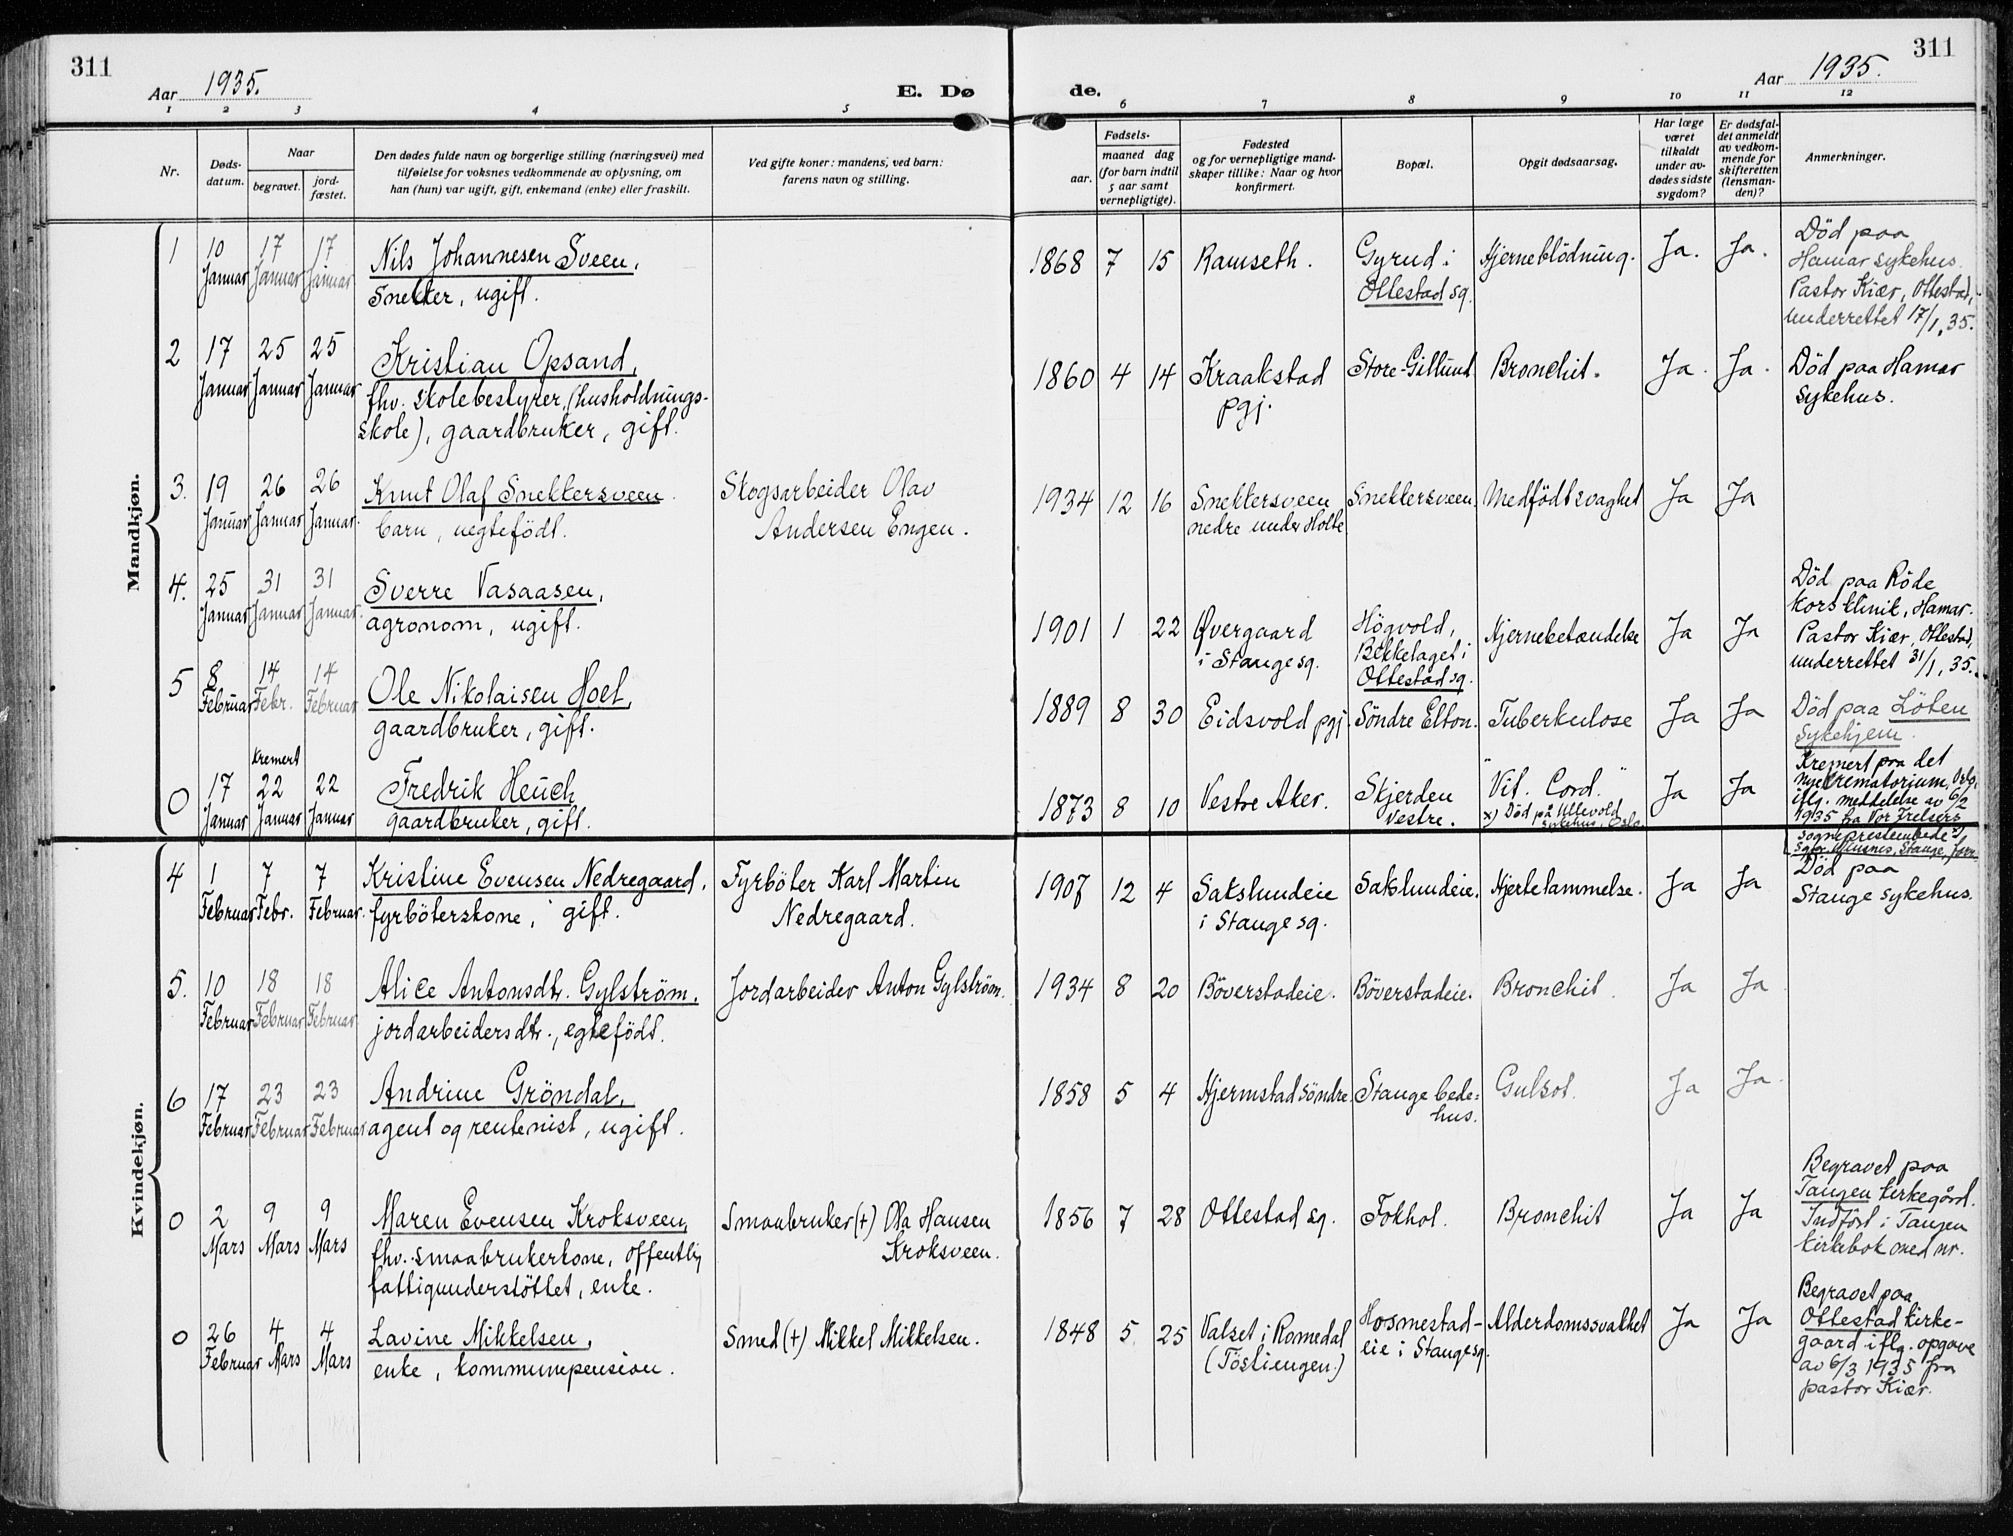 311
Aar 1935.
E. Dø
de.
Aar 1935.
311
1 2 3 4 5 6 7 8 9 10 11 12
Nr.
Døds-
datum.
Naar
begravet.
jord-
fæstet.
Den dødes fulde navn og borgerlige stilling (næringsvei) med
tilføielse for voksnes vedkommende av oplysning, om
han (hun) var ugift, gift, enkemand (enke) eller fraskilt.
Ved gifte koner: mandens, ved barn:
farens navn og stilling.
Fødsels-
aar.
maaned dag
(for barn indtil
5 aar samt
vernepligtige).
Fødested
og for vernepligtige mand-
skaper tillike: Naar og hvor
konfirmert.
Bopæl.
Opgit dødsaarsag.
Har læge
været
tilkaldt
under av-
dødes sidste
sygdom?
Er dødsfal-
det anmeldt
av vedkom-
mende for
skifteretten
(lensman-
den)?
Anmerkninger.
Mandkjøn.
1
10
Januar
17
Januar
17
Januar
Nils Johannesen Sveen,
Snekker, ugift.
1868 7 15
Ramseth.
Gyrud i
Ottestad sq.
Hjerneblödning.
Ja.
Ja.
Död paa
Hamar sykehus.
Pastor Kiær, Ottestad,
underrettet 17/1, 35.
2
17
Januar
25
Januar
25
Januar
Kristian Opsand,
fhv. skolebestyrer, (husholdnings-
skole), gaardbruker, gift.
1860 4 14
Kraakstad
pgj.
Store-Gillund
Bronchit.
Ja.
Ja.
Död paa Hamar
sykehus.
3.
19
Januar
26
Januar
26
Januar
Knut Olaf Snekkersveen.
barn, uegtefödt.
Skogsarbeider Olav
Andersen Engen.
1934 12 16
Snekkersveen
nedre under Holte
Snekkersveen.
Medfödt svaghet
Ja
Ja
4.
25
Januar
31
Januar
31
Januar
Sverre Vasaasen,
agronom, ugift.
1901 1 22
Øvergaard
i Stange sq.
Högvold,
Bekkelaget i
Ottestad sq.
Hjernebetændelse
Ja
Ja
Död paa Röde
Kors klinik, Hamar.
Pastor Kiær, Ottestad,
underrettet 31/1, 35.
5
8
Februar
14
Febr.
14
Februar
Ole Nikolaisen Hoel,
gaardbruker, gift.
1889 8 30
Eidsvold pgj.
Söndre Elton.
Tuberkulose
Ja
Ja
Död paa Löten
sykehjem.
0
17
Januar
kremert
22
Januar
22
Januar
Fredrik Heuch
gaardbruker, gift.
1873 8 10
Vestre Aker.
Skjerden
Vestre.
"Vit. Cord."
x) Död på Ullevold
sykehus, Oslo.
Ja
Ja
Kremert paa det
nye krematorium, Oslo,
iflg. meddelelse av 6/2
1935 fra Vor Frelsers
sogneprestembede
Kvindekjøn.
4
1
Februar
7
Febr.
7
Februar
Kristine Evensen Nedregaard.
fyrböterskone, gift.
Fyrböter Karl Martin
Nedregaard.
1907 12 4
Sakslundeie
i Stange sq.
Sakslundeie.
Hjertelammelse.
Ja
Ja
Död paa
Stange sykehus.
5.
10
Februar
18
Februar
18
Februar
Alice Antonsdtr. Gylström.
jordarbeidersdtr., egtefödt.
Jordarbeider Anton Gylström.
1934 8 20
Böverstadeie.
Böverstadeie.
Bronchit.
Ja
Ja
6
17
Februar
23
Februar
23
Februar
Andrine Gröndal,
agent og rentenist, ugift.
1858 5 4
Hjermstad söndre.
Stange bede-
hus.
Gulsot.
Ja
Ja
0
2
Mars
9
Mars
9
Mars
Maren Evensen Kroksveen,
fhv. smaabrukerkone, offentlig
fattigunderstöttet, enke.
Smaabruker (+) Ola Hansen
Kroksveen.
1856 7 28
Ottestad sq.
Fokhol.
Bronchit
Ja
Ja
Begravet paa
Tangen kirkegård.
Indfört i Tangen
kirkebok med nr.
0
26
Februar
4
Mars
4
Mars
Lavine Mikkelsen,
enke, kommunepension.
Smed (+) Mikkel Mikkelsen.
1848 5 25
Valset i Romedal
(Tösliengen.)
Hosmestad-
eie i Stange sq.
Alderdomssvakhet
Ja
Ja
Begravet paa
Ottestad kirke-
gaard iflg. opgave
av 6/3 1935 fra
pastor Kiær.